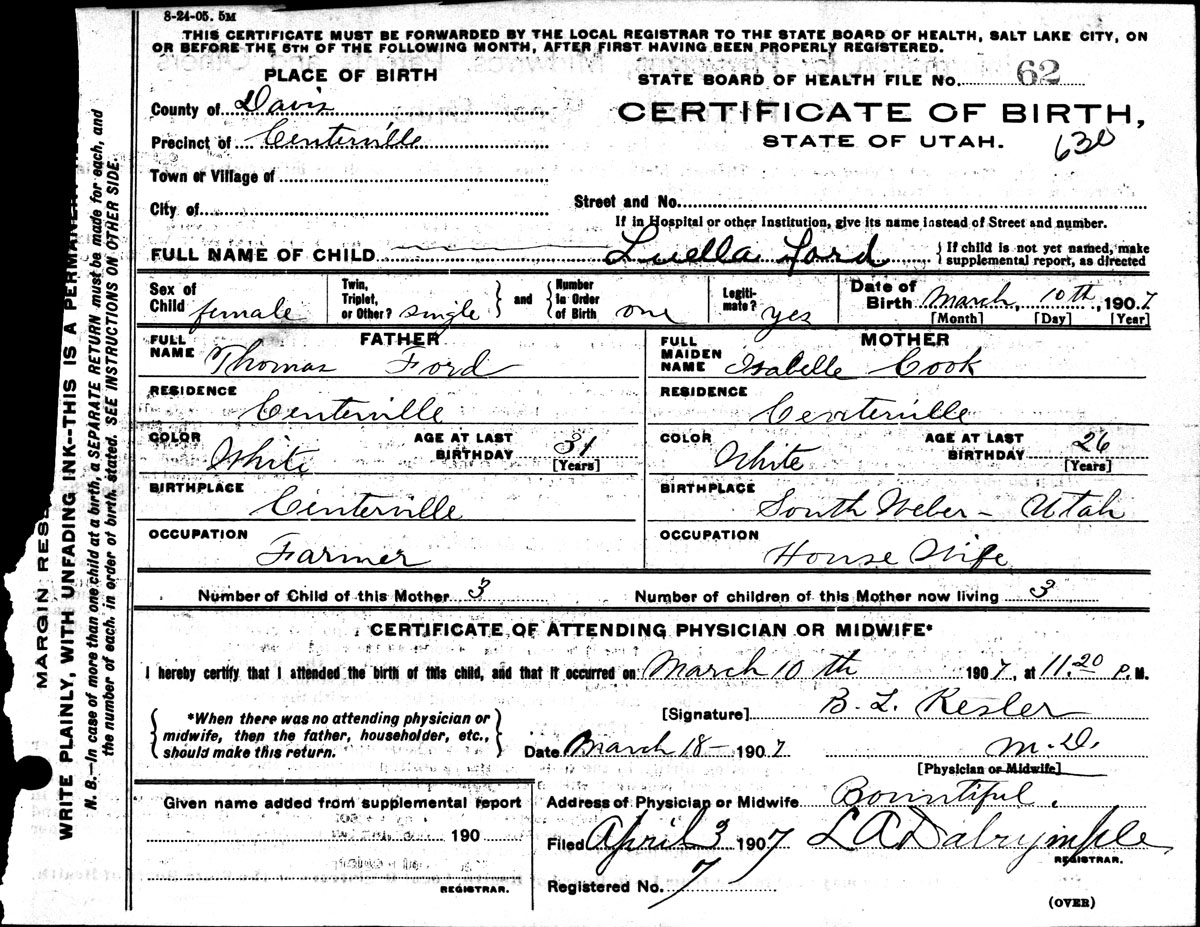 8-24-05. 5M
THIS CERTIFICATE MUST BE FORWARDED BY THE LOCAL REGISTRAR TO THE STATE BOARD OF HEALTH, SALT LAKE CITY, ON
OR BEFORE THE 5TH OF THE FOLLOWING MONTH, AFTER FIRST HAVING BEEN PROPERLY REGISTERED.
PLACE OF BIRTH
STATE BOARD OF HEALTH FILE No. 62
County of Davis
CERTIFICATE OF BIRTH,
Precinct of Centerville
STATE OF UTAH. 630
Town or Village of
City of
Street and No.
If in Hospital or other Institution, give its name instead of Street and number.
FULL NAME OF CHILD Luella Ford { If child is not yet named, make supplemental report, as directed
Sex of Child female Twin, Triplet, or Other? single } and { Number in Order of Birth one Legitimate? yes Date of Birth March, 10th, 1907
[Month] [Day] [Year]
FATHER
FULL NAME Thomas Ford
MOTHER
FULL MAIDEN NAME Isabelle Cook
RESIDENCE Centerville
RESIDENCE Centerville
COLOR White AGE AT LAST BIRTHDAY 31 [Years]
COLOR White AGE AT LAST BIRTHDAY 26 [Years]
BIRTHPLACE Centerville
BIRTHPLACE South Weber - Utah
OCCUPATION Farmer
OCCUPATION House Wife
Number of Child of this Mother 3 Number of children of this Mother now living 3
CERTIFICATE OF ATTENDING PHYSICIAN OR MIDWIFE*
I hereby certify that I attended the birth of this child, and that it occurred on March 10th 1907, at 11.20 P.M.
{ *When there was no attending physician or
midwife, then the father, householder, etc.,
should make this return. }
[Signature] B. L. Kesler
Date March 18- 1907 M.D.
[Physician or Midwife]
Given name added from supplemental report
190
REGISTRAR.
Address of Physician or Midwife Bountiful.
Filed April 3 1907 L A Dalrymple
REGISTRAR.
Registered No. 7
(OVER)
MARGIN RES
WRITE PLAINLY, WITH UNFADING INK--THIS IS A PERMANE
N. B.—In case of more than one child at a birth, a SEPARATE RETURN must be made for each, and
the number of each, in order of birth, stated. SEE INSTRUCTIONS ON OTHER SIDE.